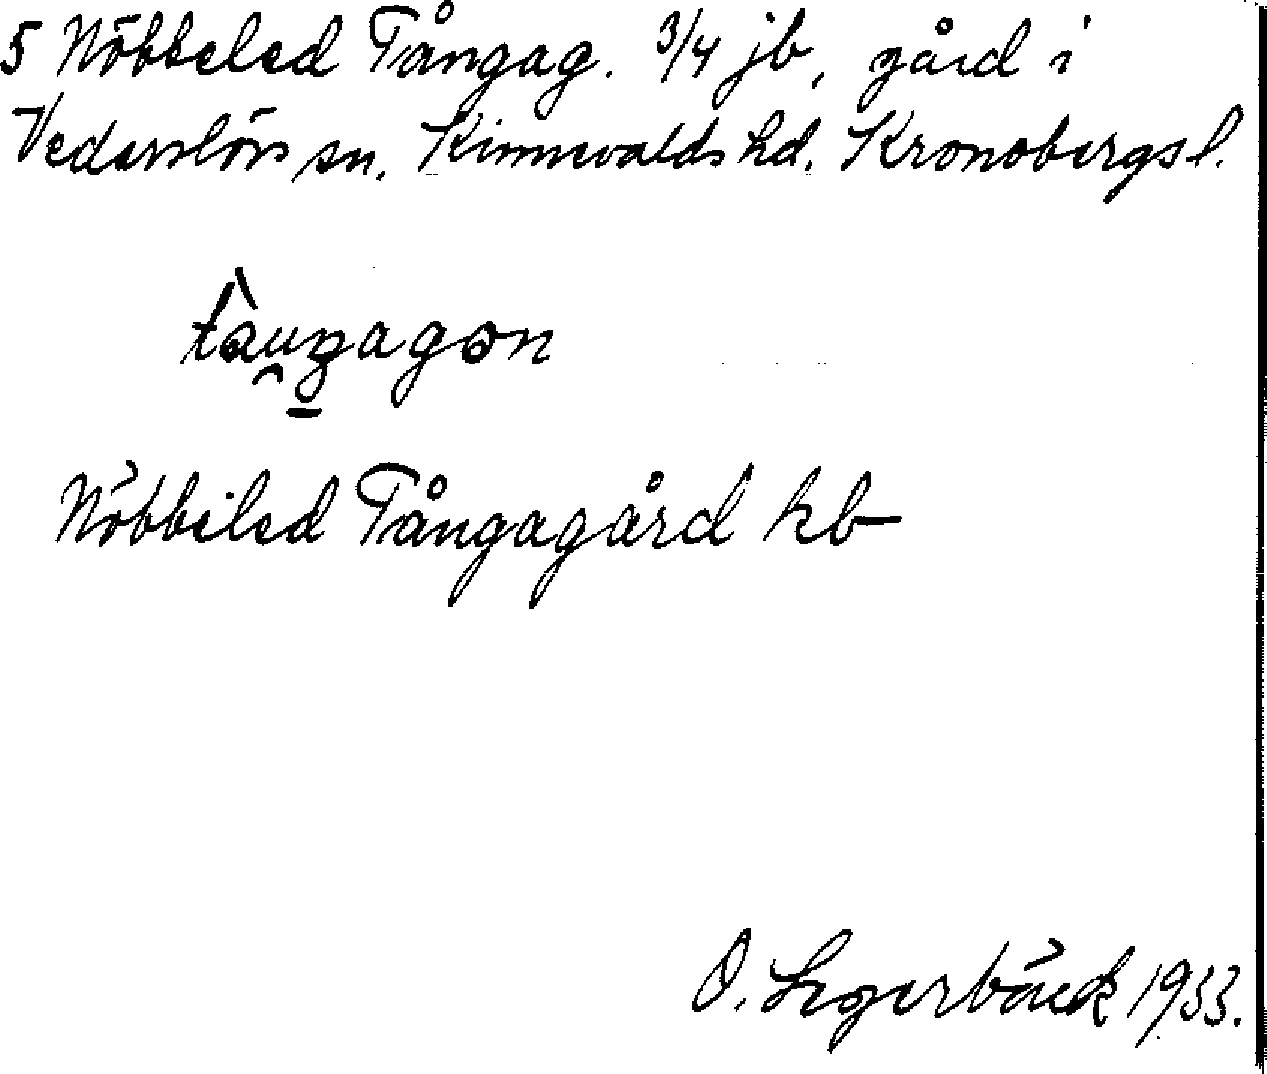 5 Nöbbeled Tångag. 3/4 jb, gård i
Vederslövs sn. Kinnevalds hd. Kronobergs l.
Nöbbeled Tångagård kb
O. Segerbäck 1933.